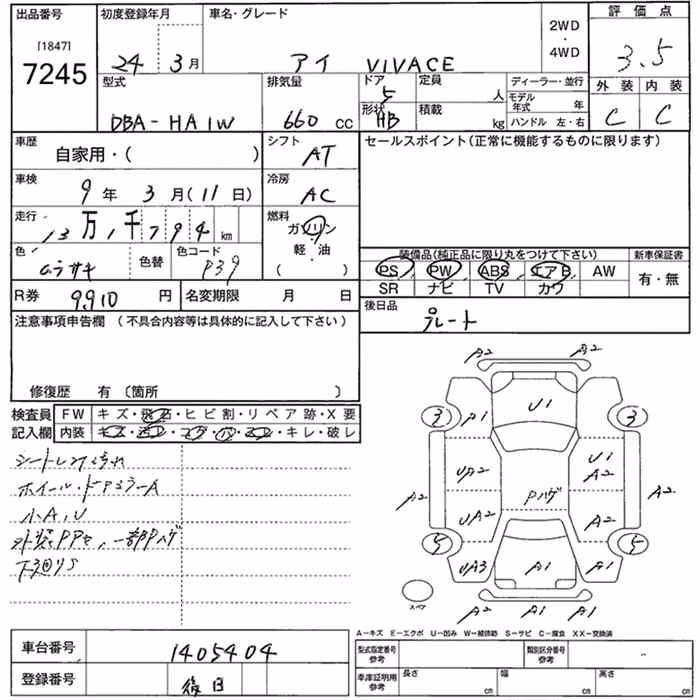 出品番号 初度登録年月 車名・グレード 2WD・4WD 評価点
[1847]
7245
24年3月 アイ VIVACE 3.5
型式 排気量 ドア 5 定員 人 ディーラー・並行 外装 内装
DBA-HA1W 660cc 形状 HB 積載 kg モデル年式 年 C C
ハンドル 左・右
車歴 自家用・( ) シフト AT セールスポイント(正常に機能するものに限ります)
車検 9年3月(11日) 冷房 AC
走行 13万1千794km 燃料 ガソリン・軽油・( )
色 ムラサキ 色替 色コード P39 装備品(純正品に限り丸をつけて下さい) 新車保証書
PS PW ABS エアB AW 有・無
SR ナビ TV カワ
R券 9910円 名変期限 月 日 後日品
プレート
注意事項申告欄(不具合内容等は具体的に記入して下さい)
修復歴 有〔箇所 〕
検査員 FW キズ・飛石・ヒビ割・リペア跡・X要
記入欄 内装 キレ・破レ
ホイール・ドアミラーA
小A,U
下廻りS
A2 A2
3 A1 U1 3
UA2 U1 A2
A2 Pハゲ A2
UA2 A2
5 UA3 A1 A1 5
スペア A2 A1 A1
A-キズ E-エクボ U-凹み W-補修跡 S-サビ C-腐食 XX-交換済
車台番号 1405404 型式指定番号 参考 類別区分番号 参考
登録番号 後日 車庫証明用 参考 長さ cm 幅 cm 高さ cm